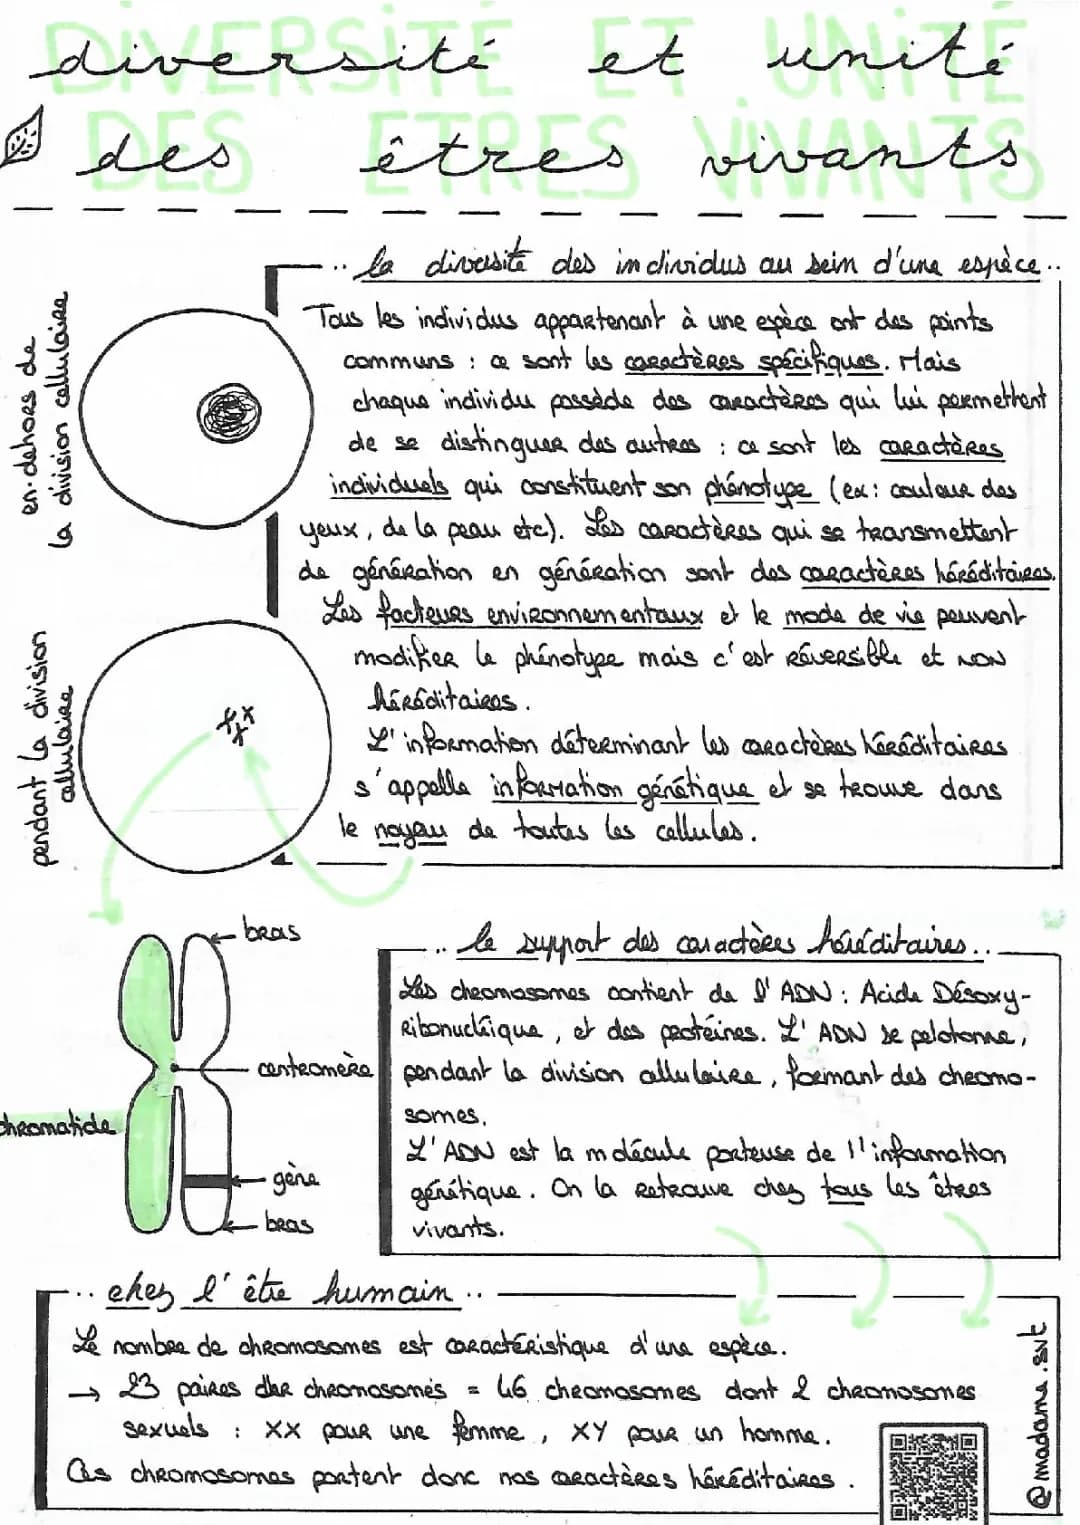 DIVERSITÉ ET UNITÉ
DES ETRES VIVANTS
diversité et unité
des êtres vivants
.. la diversité des individus au sein d'une espèce ..
en-dehors de
la division cellulaire
Tous les individus appartenant à une espèce ont des points
communs : ce sont les caractères spécifiques. Mais
chaque individu possède des caractères qui lui permettent
de se distinguer des autres : ce sont les caractères
individuels qui constituent son phénotype (ex: couleur des
yeux, de la peau etc). Les caractères qui se transmettent
de génération en génération sont des caractères héréditaires.
Les facteurs environnementaux et le mode de vie peuvent
modifier le phénotype mais c'est réversible et NON
héréditaires.
L'information déterminant les caractères héréditaires
s'appelle information génétique et se trouve dans
le noyau de toutes les cellules.
pendant la division
cellulaire
bras
centromère
chromatide
gène
bras
.. le support des caractères héréditaires..
Les chromosomes contient de l'ADN : Acide Désoxy-
Ribonucléique, et des protéines. L'ADN se pelotonne,
pendant la division cellulaire, formant des chromo-
somes.
L'ADN est la molécule porteuse de l'information
génétique. On la retrouve chez tous les êtres
vivants.
.. chez l'être humain ..
Le nombre de chromosomes est caractéristique d'une espèce.
→ 23 paires de chromosomes = 46 chromosomes dont 2 chromosomes
sexuels : XX pour une femme, XY pour un homme.
Ces chromosomes portent donc nos caractères héréditaires.
@madame.svt